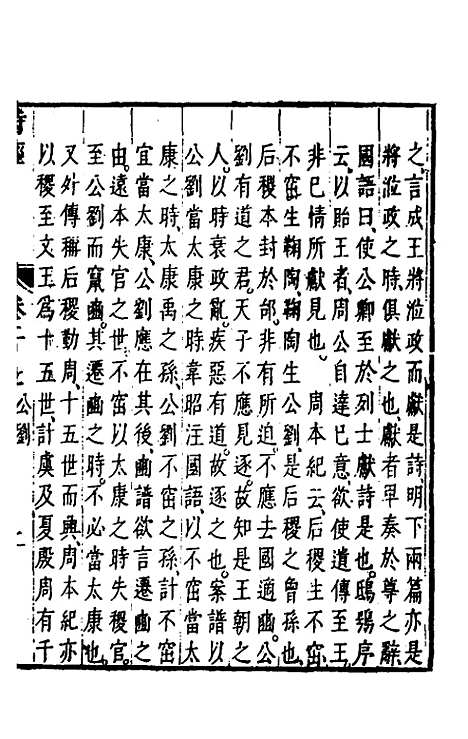 之言成王將涖政而獻是詩明下兩篇亦是
將涖政之時俱獻之也獻者卑奏於尊之辭
國語曰使公卿至於列士獻詩是也鴟鴞序
云以貽王者周公自達已意欲使遺傳至王
非已情所獻見也。　周本紀云后稷生不窋
不窋生鞠陶鞠陶生公劉是后稷之曾孫也
后稷本封於邰非有所迫不應去國適豳公
劉有道之君天子不應見逐故知是王朝之
人以時衰政亂疾惡有道故逐之也案譜以
公劉當太康之時韋昭注國語以不窋當太
康之時太康禹之孫公劉不窋之孫計不窋
宜當太康公劉應在其後豳譜欲言遷豳之
由遠本失官之世不窋以太康之時失稷官
至公劉而竄豳其遷豳之時不必當太康也
又外傳稱后稷勤周十五世而興周本紀亦
以稷至文王爲十五世計虞及夏殷周有千
詩經　卷二十七公劉